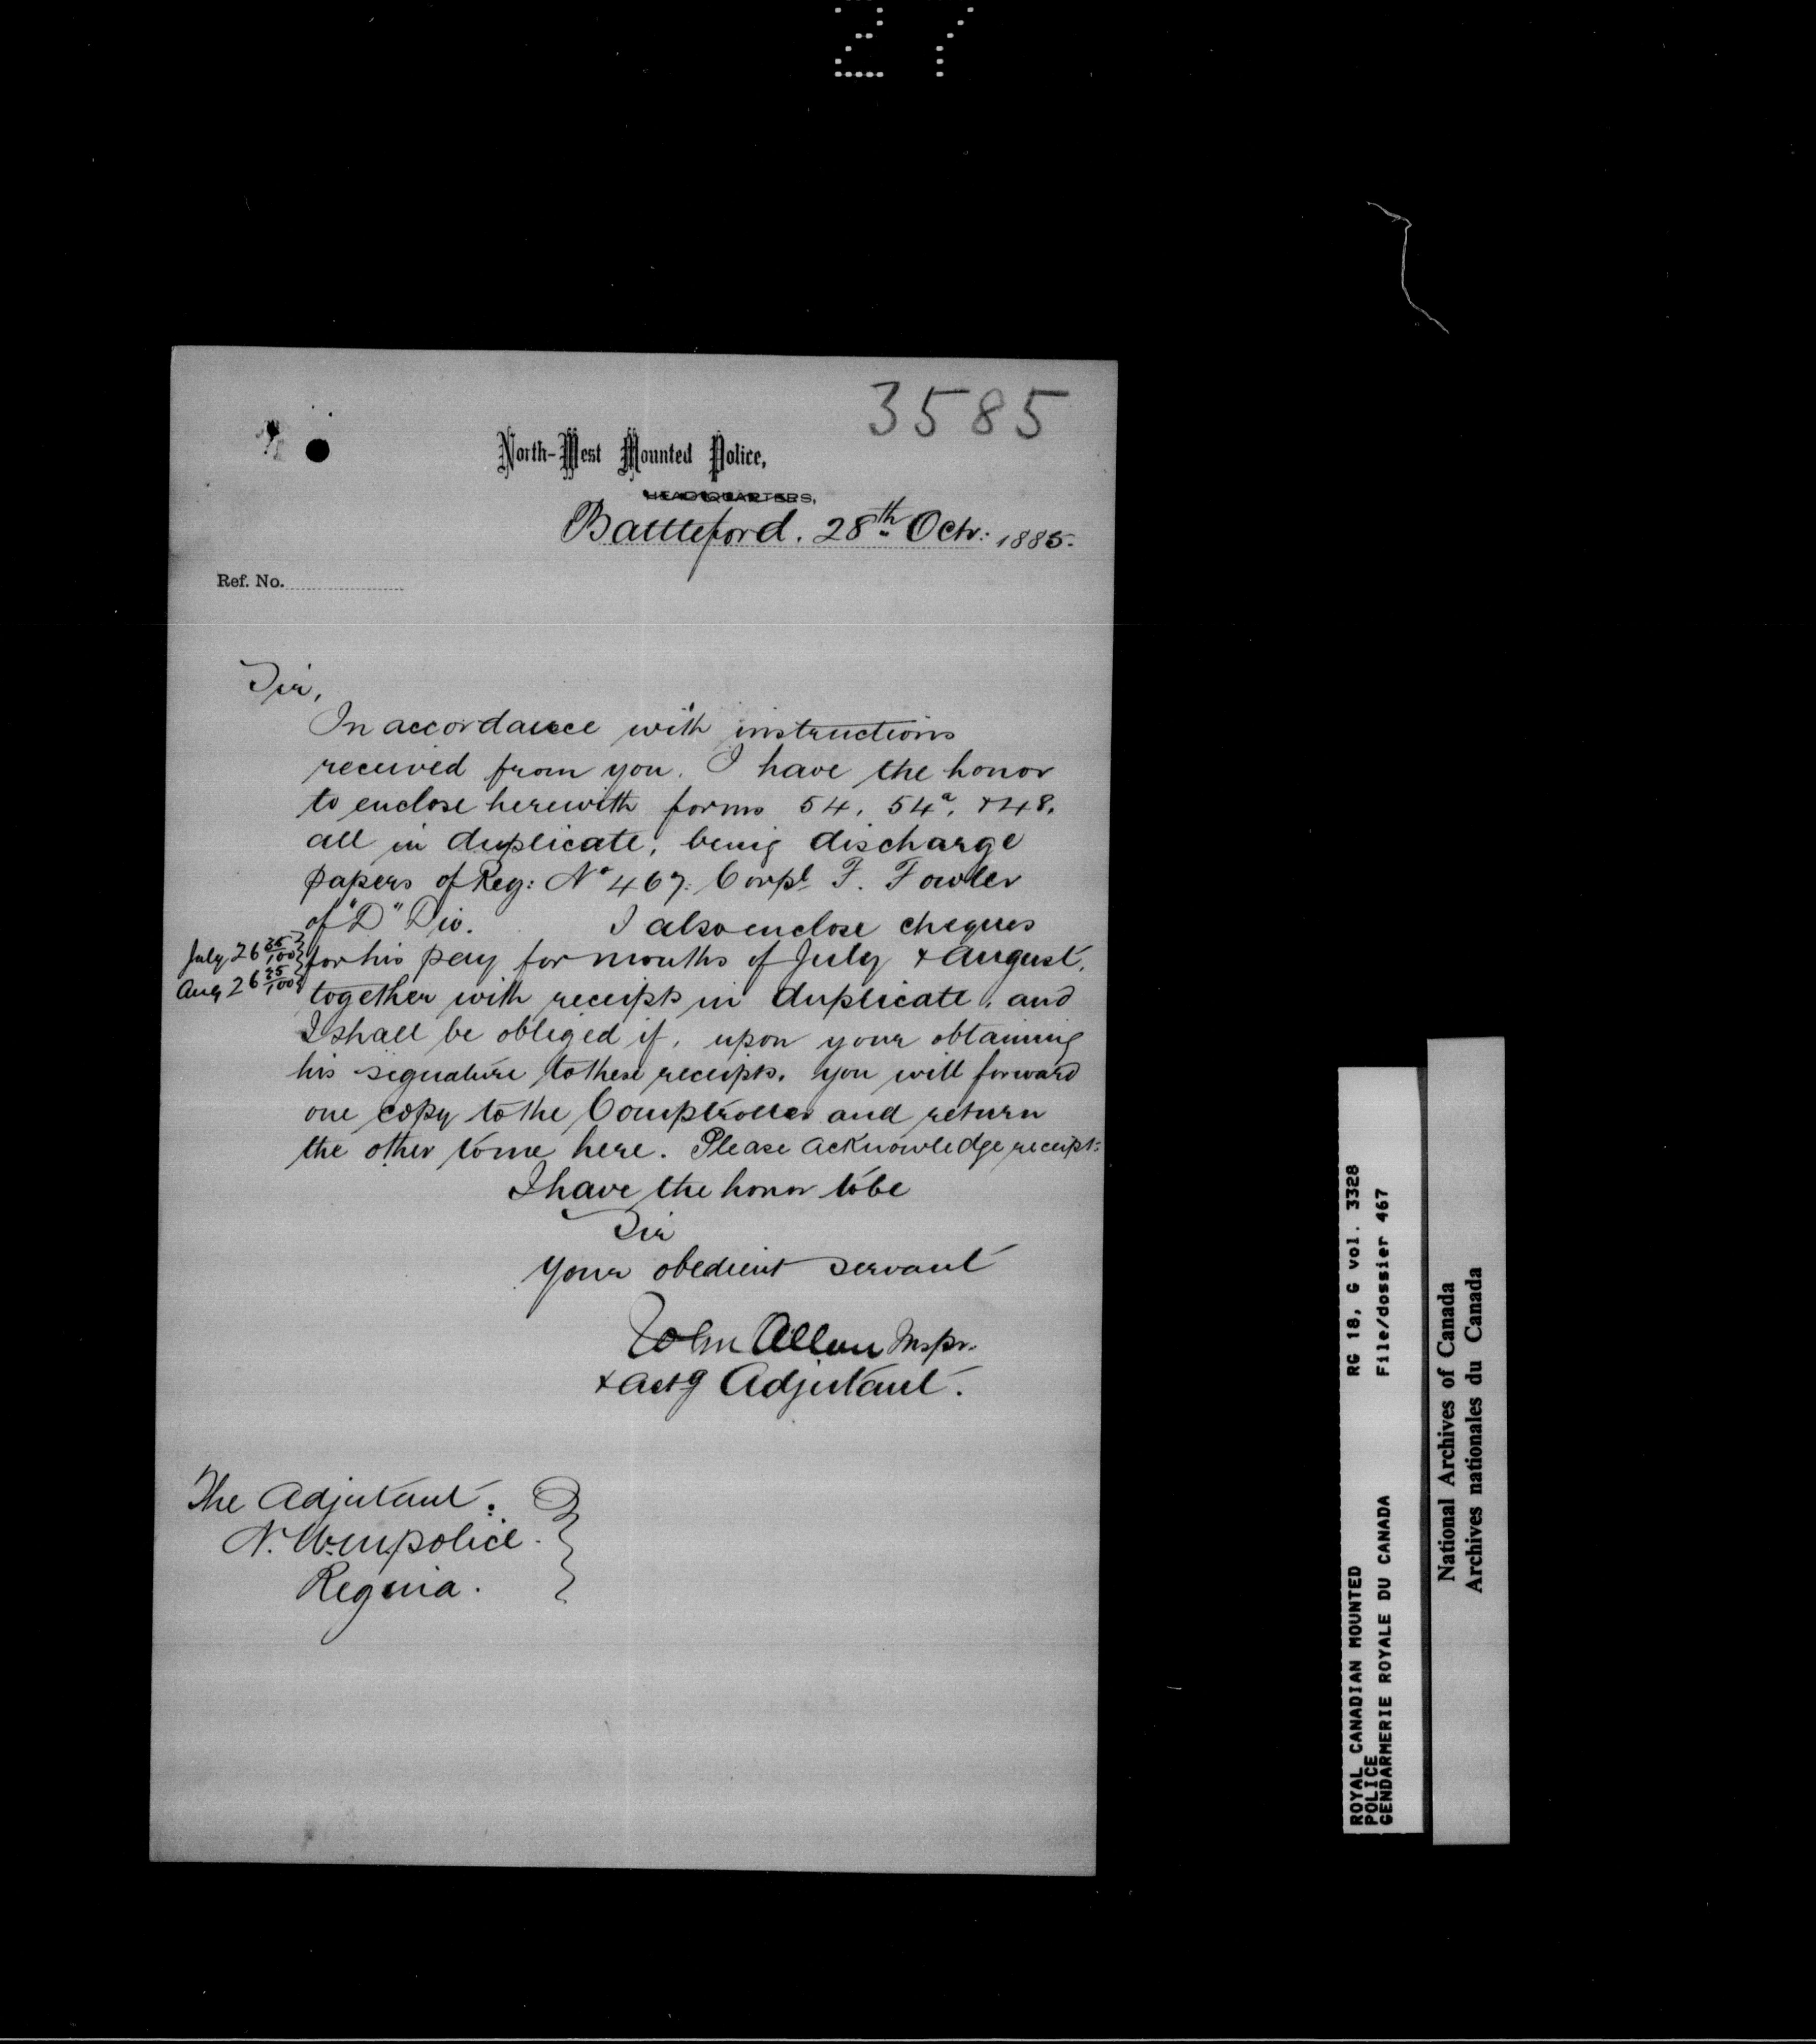 27
3585
North-West Mounted Police,
HEADQUARTERS,
Battleford. 28th Octr: 1885.
Ref. No.
Sir,
In accordance with instructions
received from you. I have the honor
to enclose herewith forms 54, 54a, & 48,
all in duplicate, being discharge
papers of Reg: No 467: Corpl F. Fowler
of "D" Div. I also enclose cheques
July 26 35/100 } for his pay for months of July & August,
Aug 26 35/100 } together with receipts in duplicate, and
I shall be obliged if, upon your obtaining
his signature to these receipts, you will forward
one copy to the Comptroller and return
the other to me here. Please acknowledge receipt:
I have the honor to be
Sir
Your obedient servant
John Allan Inspr.
& actg Adjutant.
The Adjutant.
N.W.M. Police.
Regina.
ROYAL CANADIAN MOUNTED RG 18, G vol. 3328
POLICE
GENDARMERIE ROYALE DU CANADA File/dossier 467
National Archives of Canada
Archives nationales du Canada